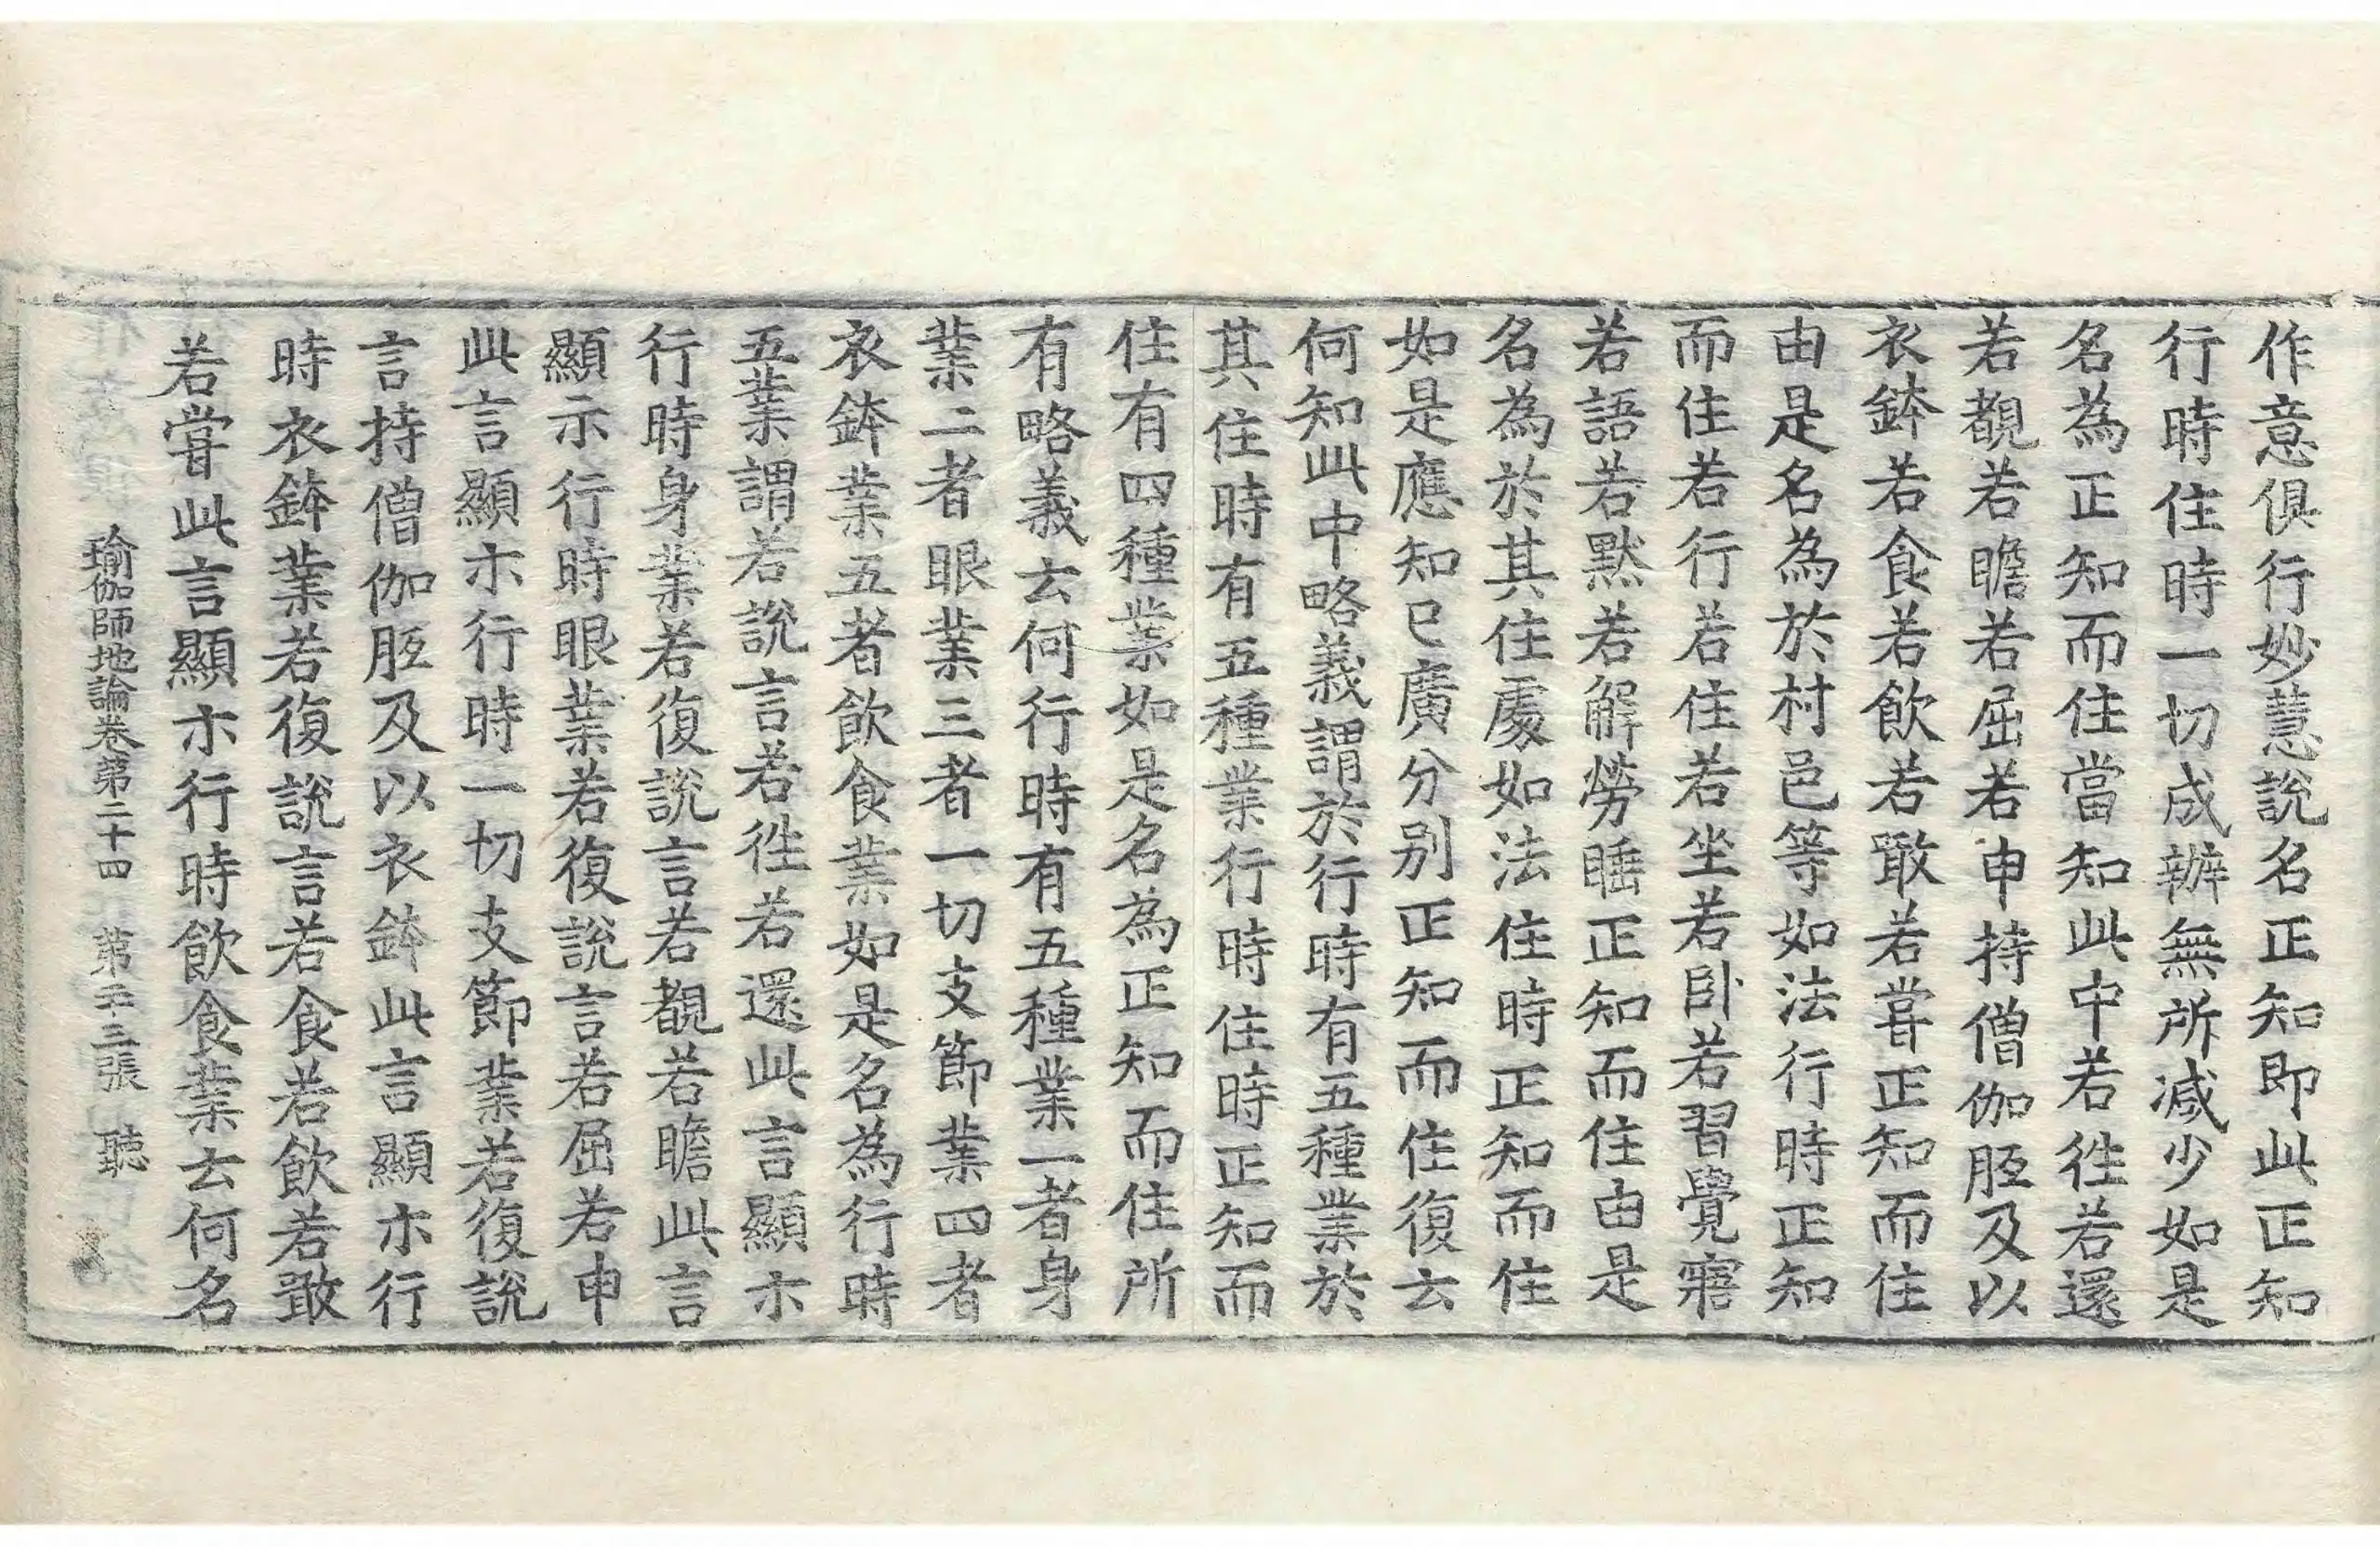 作意俱行妙慧說名正知即此正知
行時住時一切成辦無所減少如是
名為正知而住當知此中若徃若還
若覩若瞻若屈若申持僧伽胝及以
衣鉢若食若飲若噉若甞正知而住
由是名為於村邑等如法行時正知
而住若行若住若坐若臥若習覺寤
若語若默若解勞睡正知而住由是
名為於其住處如法住時正知而住
如是應知已廣分別正知而住復云
何知此中略義謂於行時有五種業於
其住時有五種業行時住時正知而
住有四種業如是名為正知而住所
有略義云何行時有五種業一者身
業二者眼業三者一切支節業四者
衣鉢業五者飲食業如是名為行時
五業謂若說言若徃若還此言顯示
行時身業若復說言若覩若瞻此言
顯示行時眼業若復說言若屈若申
此言顯示行時一切支節業若復說
言持僧伽胝及以衣鉢此言顯示行
時衣鉢業若復說言若食若飲若噉
若甞此言顯示行時飲食業云何名
瑜伽師地論卷第二十四 第二十三張 聽